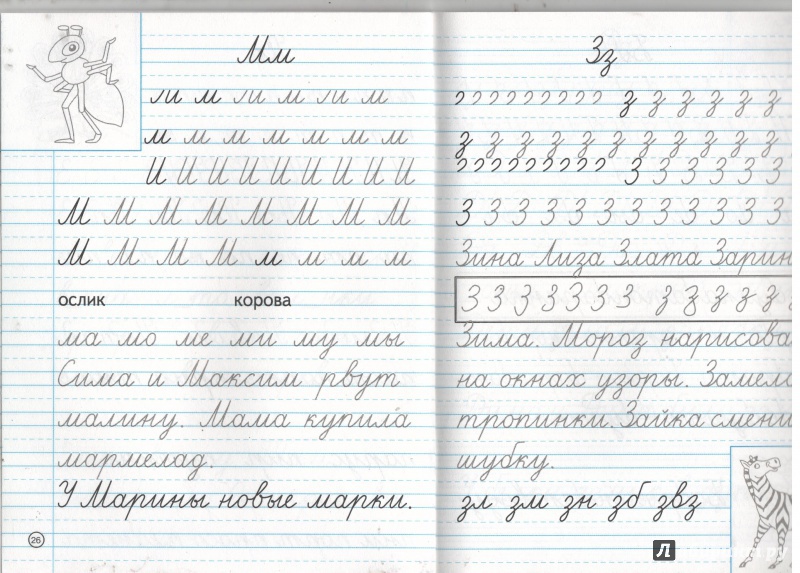 Мм
м м м м м м м
М М М М М М М М
М М М М м м м м
ослик корова
ма мо ме ми му мы
Сима и Максим рвут
малину. Мама купила
мармелад.
У Марины новые марки.
26
Зз
з з з з з з
з з з з з з з з з з з з
З З З З З З
З З З З З З З З З З З З
Зина Лиза Злата
З З З З З З З з з з з з
Зима. Мороз
на окнах узоры.
тропинки. Зайка
шубку.
зл зм зн зб звз